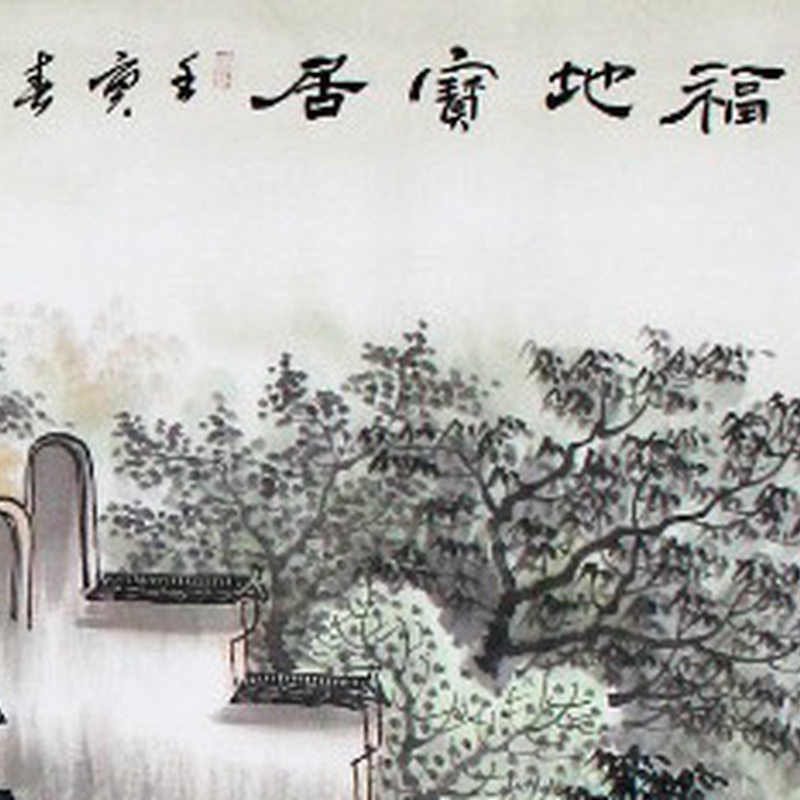 福地寶居
壬寅春